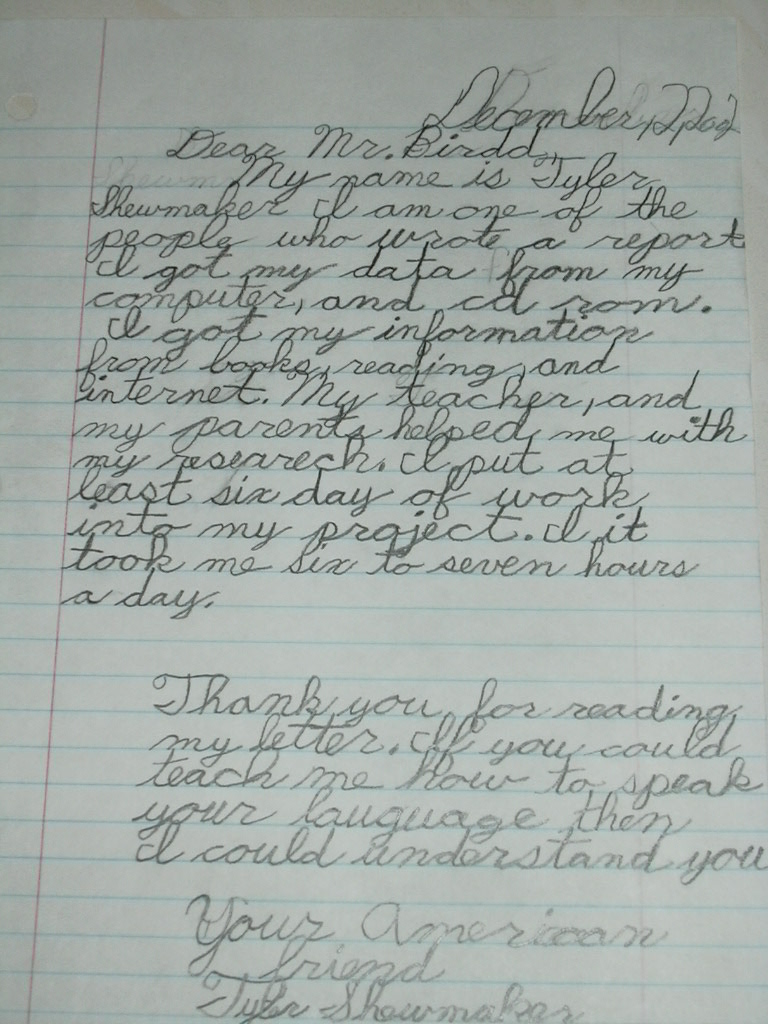 December,
Dear Mr. Birdd,
My name is Tyler
Shewmaker I am one of the
people who wrote a report
I got my data from my
computer, and cd rom.
I got my information
from books, reading, and
internet. My teacher, and
my parents helped me with
my researech. I put at
least six day of work
into my project. I it
took me six to seven hours
a day.
Thank you for reading
my letter. If you could
teach me how to speak
your lauguage then
I could understand you
Your American
friend
Tyler Shewmaker